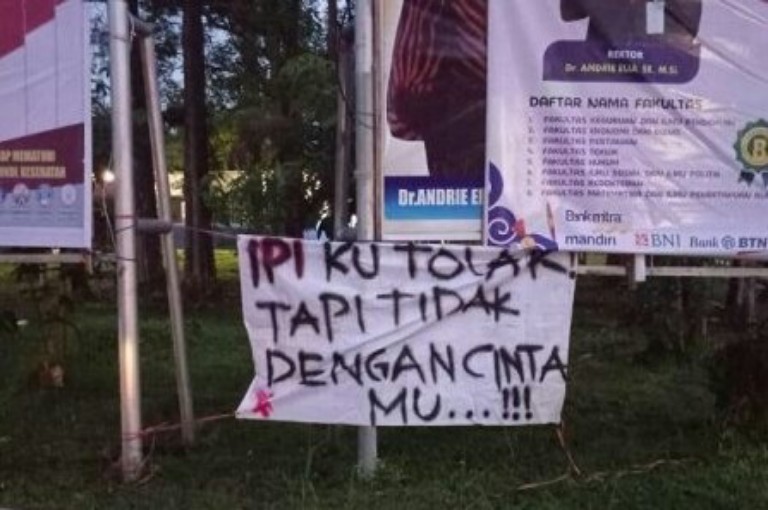 AP MEMATUHI
KOL KESEHATAN
Dr.ANDRIE EL
REKTOR
Dr. ANDRIE ELIA, SE, M.Si
DAFTAR NAMA FAKULTAS
1. FAKULTAS KEGURUAN DAN ILMU PENDIDIKAN
2. FAKULTAS EKONOMI DAN BISNIS
3. FAKULTAS PERTANIAN
4. FAKULTAS TEKNIK
5. FAKULTAS HUKUM
6. FAKULTAS ILMU SOSIAL DAN ILMU POLITIK
7. FAKULTAS KEDOKTERAN
8. FAKULTAS MATEMATIKA DAN ILMU PENGETAHUAN
Bank mitra
mandiri BNI Bank BTN
IPI KU TOLAK.
TAPI TIDAK
DENGAN CINTA
MU...!!!